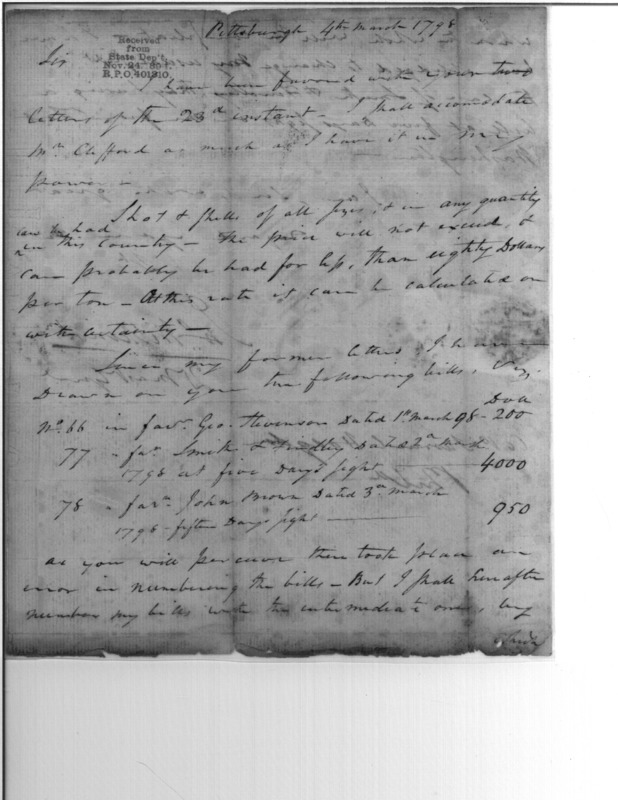 Pittsburgh 4th March 1798
Received
from
State Dep't.
Nov. 24. '89
B.P.O. 401210
Sir
I have been favored with your two
letters of the 23d instant - I shall accomodate
Mr. Clifford as much as I have it in my
power -
Shot & Shells of all sizes, & in any quantity
can be had
in this Country - The price will not exceed, &
can probably be had for less, than eighty Dollars
per ton - At this rate it can be calculated on
with certainty -
Since my former letters, I have
Drawn on you the following bills, Viz.
Doll
No. 66 in favr. Geo. Stevenson Dated 1st March 98 - 200
77 - favr. Smith & Dated 2nd March
1798 at five Days sight 4000
78 - favr. John Brown Dated 3rd March
1798 - fifteen Days sight 950
as you will perceive there took place an
error in numbering the bills - But I shall hereafter
number my bills with the intermediate ones,